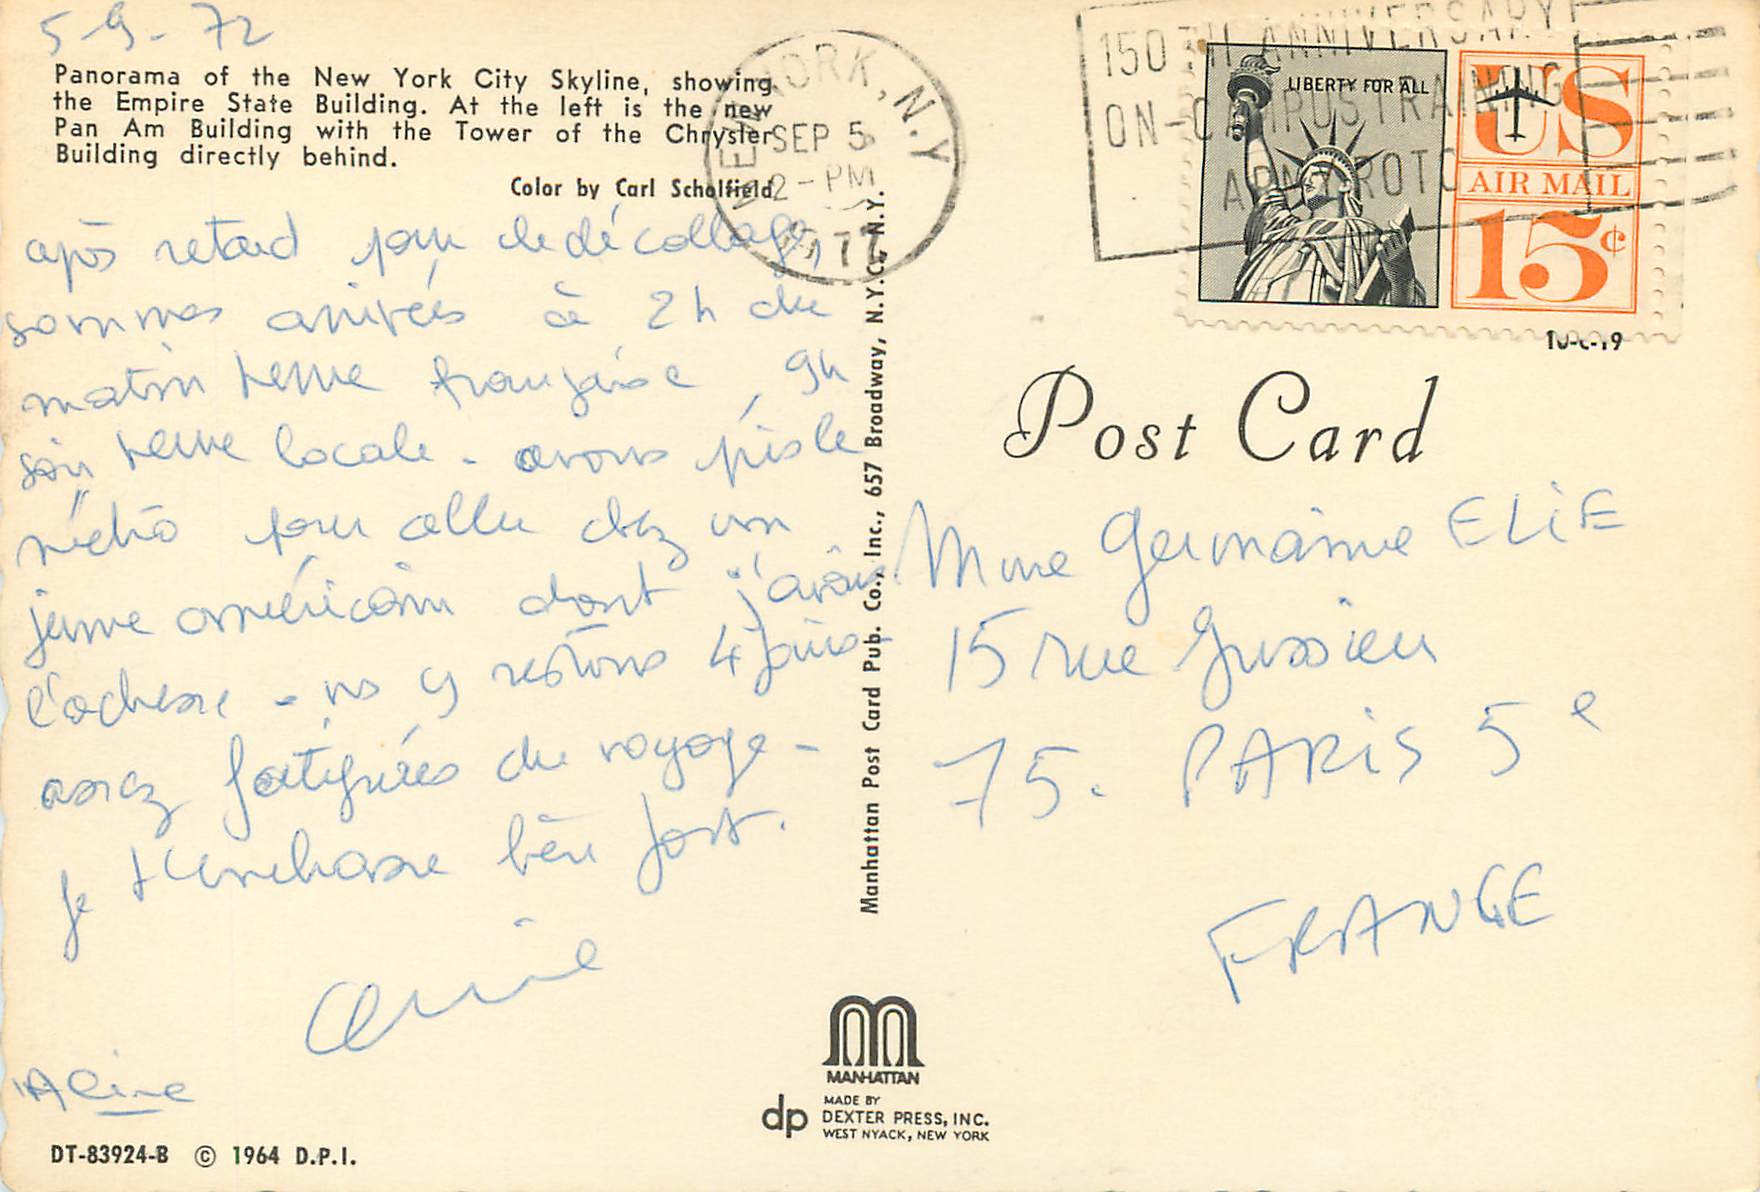 5-9-72
Panorama of the New York City Skyline, showing
the Empire State Building. At the left is the new
Pan Am Building with the Tower of the Chrysler
Building directly behind.
Color by Carl Scholfield
après retard pour le décollage,
sommes arrivées à 2h du
matin heure française, 9h
soir heure locale - avons pris le
métro pour aller chez un
jeune américain dont j'avais
l'adresse - ns y restons 4 jours
assez fatiguées du voyage -
Je t'embrasse bien fort.
Aline
Aline
DT-83924-B © 1964 D.P.I.
Manhattan Post Card Pub. Co., Inc., 657 Broadway, N.Y.C., N.Y.
MANHATTAN
dp
MADE BY
DEXTER PRESS, INC.
WEST NYACK, NEW YORK
NEW YORK, N.Y
SEP 5
2-PM
150TH ANNIVERSARY
ON-CAMPUS TRAINING
ARMY ROTC
LIBERTY FOR ALL
US
AIR MAIL
15¢
Post Card
Mme Germaine ELIE
15 rue Jussieu
75. PARIS 5e
FRANCE